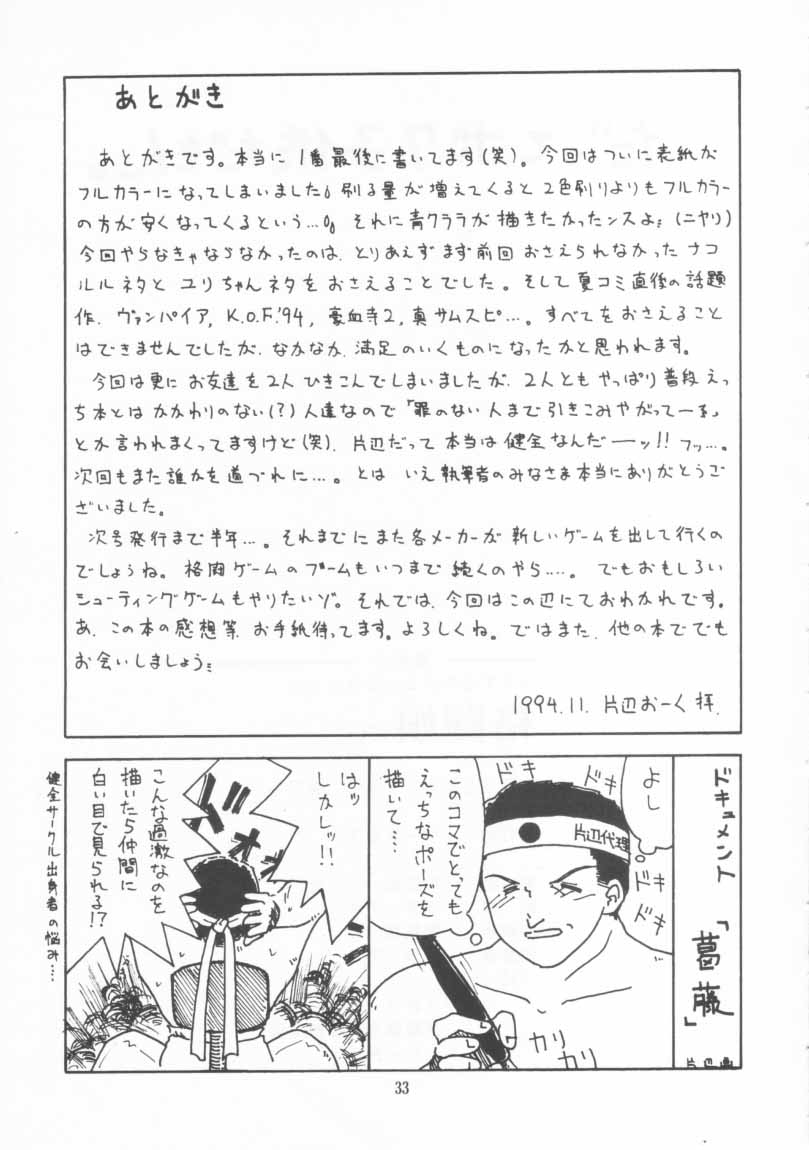 あとがき
あとがきです。本当に1番最後に書いてます(笑)。今回はついに表紙が
フルカラーになってしまいました。刷る量が増えてくると2色刷りよりもフルカラー
の方が安くなってくるという…。それに青クララが描きたかったンスよ(ニヤリ)
今回やらなきゃならなかったのは、とりあえずまず前回おさえられなかったナコ
ルルネタとユリちゃんネタをおさえることでした。そして夏コミ直後の話題
作、ヴァンパイア, K.O.F.'94, 豪血寺2, 真サムスピ…。すべてをおさえること
はできませんでしたが、なかなか、満足のいくものになったかと思われます。
今回は更にお友達を2人ひきこんでしまいましたが、2人ともやっぱり普段えっ
ち本とはかかわりのない(?)人達なので「罪のない人まで引きこみやがってーっ」
とか言われまくってますけど(笑)、片辺だって本当は健全なんだーッ!!フッ…。
次回もまた誰かを道づれに…。とはいえ執筆者のみなさま本当にありがとうご
ざいました。
次号発行まで半年…。それまでにまた各メーカーが新しいゲームを出して行くの
でしょうね。格闘ゲームのブームもいつまで続くのやら……。でもおもしろい
シューティングゲームもやりたいゾ。それでは、今回はこの辺にておわかれです。
あ、この本の感想等、お手紙待ってます。よろしくね。ではまた、他の本ででも
お会いしましょう
1994.11. 片辺おーく拝.
ドキュメント「葛藤」
よし
ドキ
ドキ
片辺代理
ドキ
ドキ
このコマでとっても
えっちなポーズを
描いて…
カリ
カリ
はッ
しかしッ!!
こんな過激なのを
描いたら仲間に
白い目で見られる!?
健全サークル出身者の悩み…
33